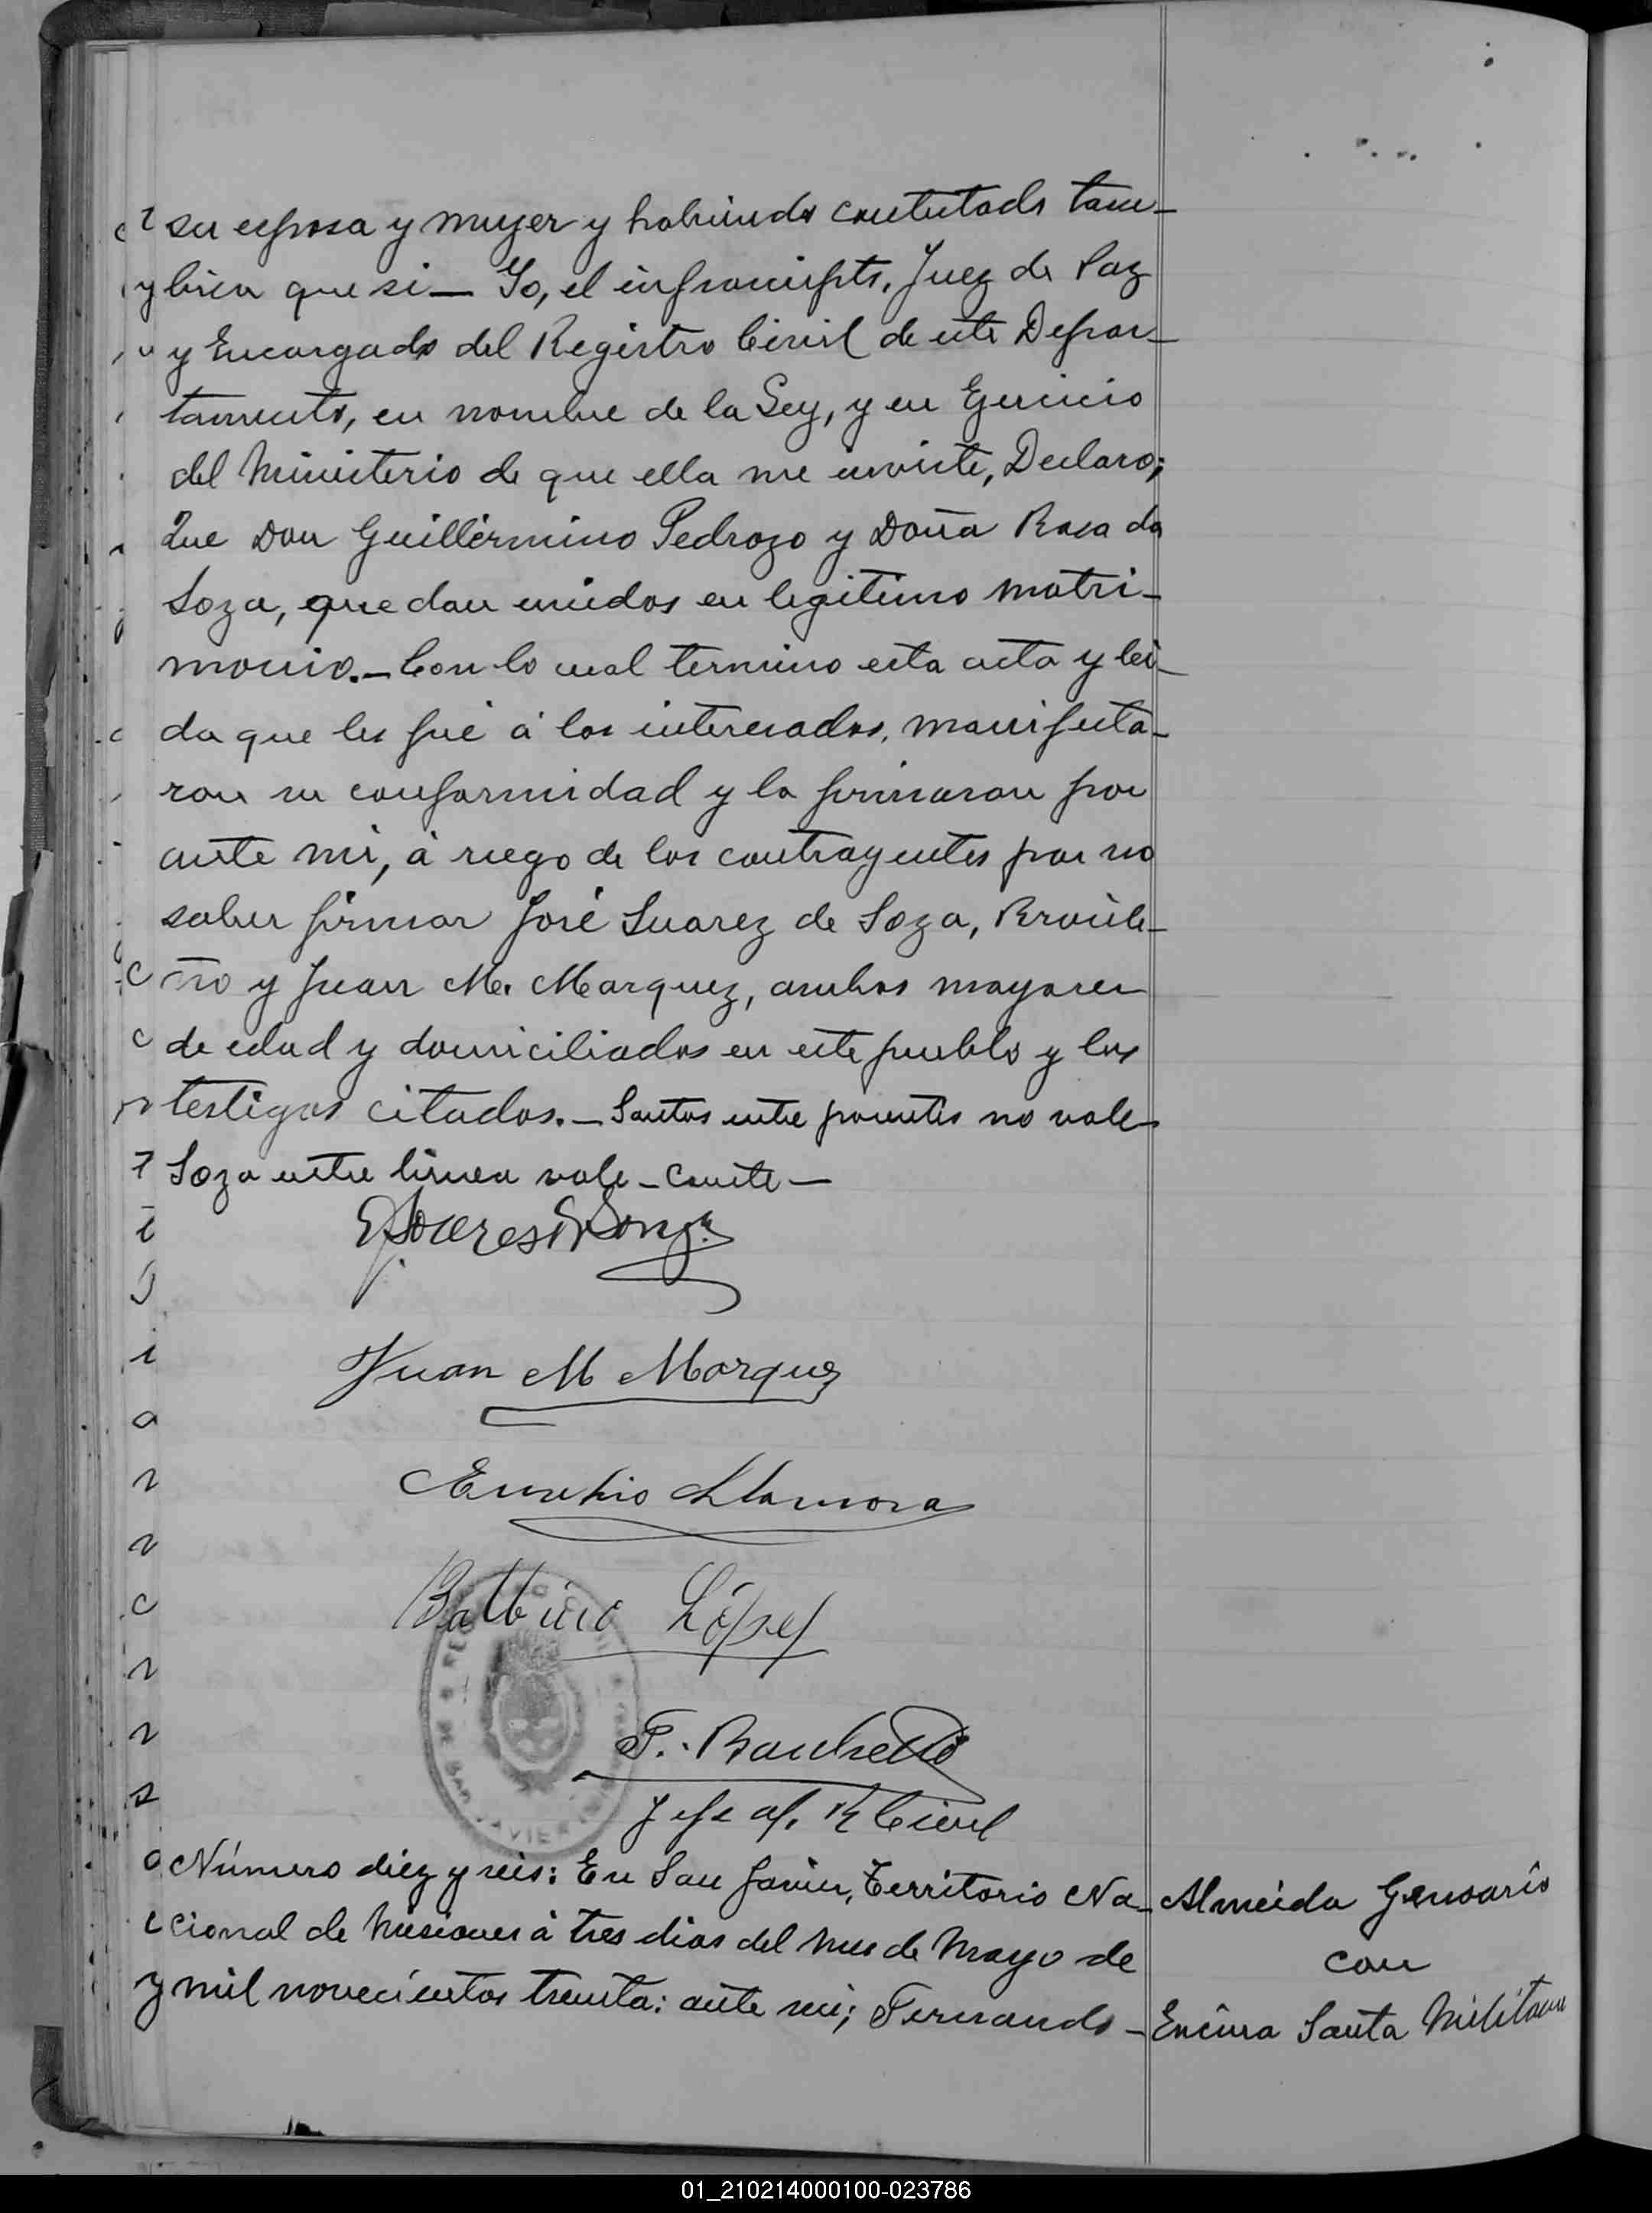 su esposa y mujer y habiendo contestado tam-
bien que si — Yo, el infrascripto, Juez de Paz
y Encargado del Registro Civil de este Depar-
tamento, en nombre de la Ley, y en Ejercicio
del Ministerio de que ella me inviste, Declaro;
Que Don Guillermino Pedrozo y Doña Rosa da
Soza, quedan unidos en legitimo matri-
monio. — Con lo cual termino esta acta y lei-
da que les fué á los interesados, manifesta-
ron su conformidad y la firmaron por
ante mi, á ruego de los contrayentes por no
saber firmar José Suarez de Soza, Brasile-
ño y Juan M. Marquez, ambos mayores
de edad y domiciliados en este pueblo y los
testigos citados. — Santos entre parentis no vale
Soza entre linea vale — Conste —
Juan M Marquez
Eusebio Llamosa
Balbino López
F. Bombelli
Jefe of. R Civil
Número diez y seis: En San Javier, Territorio Na-
cional de Misiones á tres dias del mes de Mayo de
mil novecientos treinta: ante mi; Fernando
Almeida Genuario
con
Encina Santa Militana
01_210214000100-023786